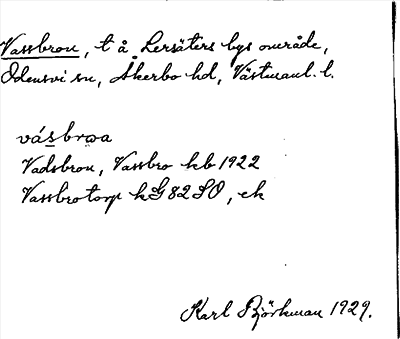 Vassbron, t å Lersäters bys område,
Odensvi sn, Åkerbo hd, Västmanl. l.
vásbrωa
Vadsbron, Vassbro hb 1922
Vassbrotorp kG82SO, ek
Karl Björkman 1929.